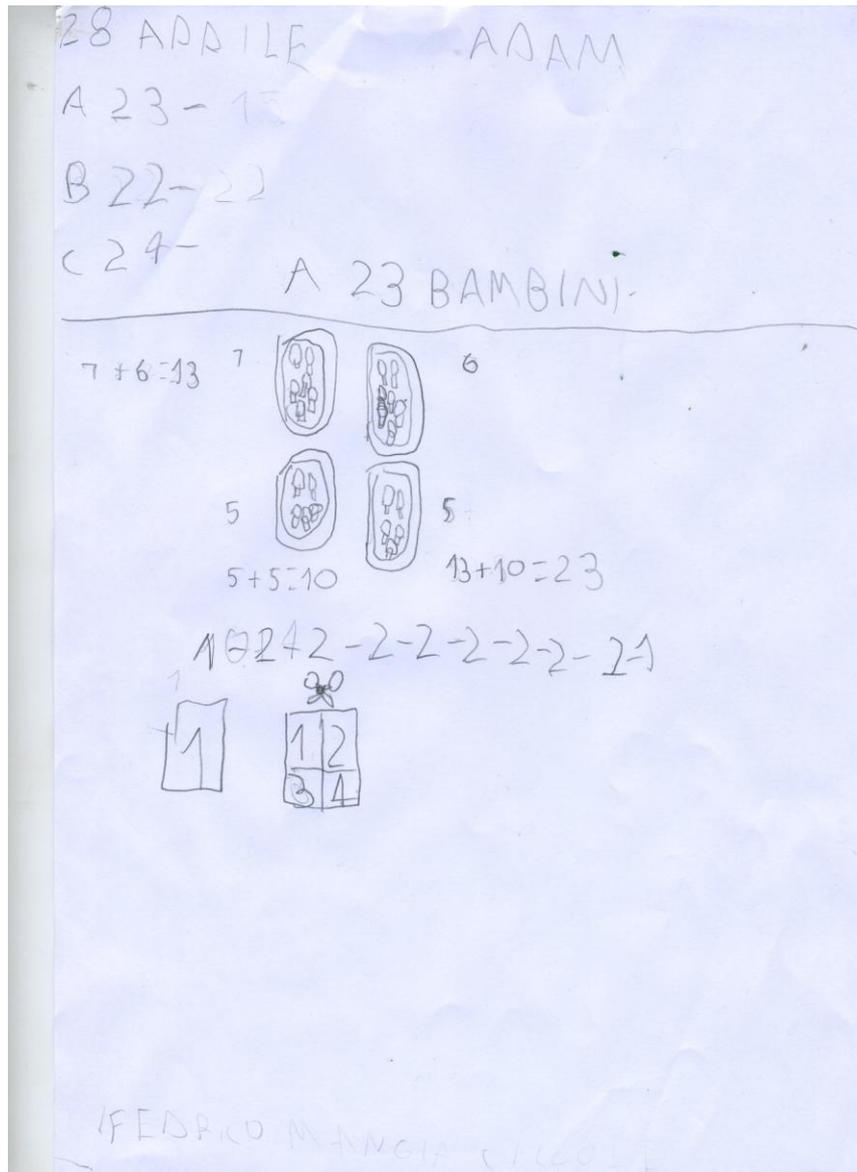 28 APRILE ADAM
A 23-13
B 22-22
C 24-
A 23 BAMBINI.
7+6=13 7 6
5 5
5+5=10 13+10=23
2-2-2-2-2-2-1
1
1 1 2
3 4
MANGIA